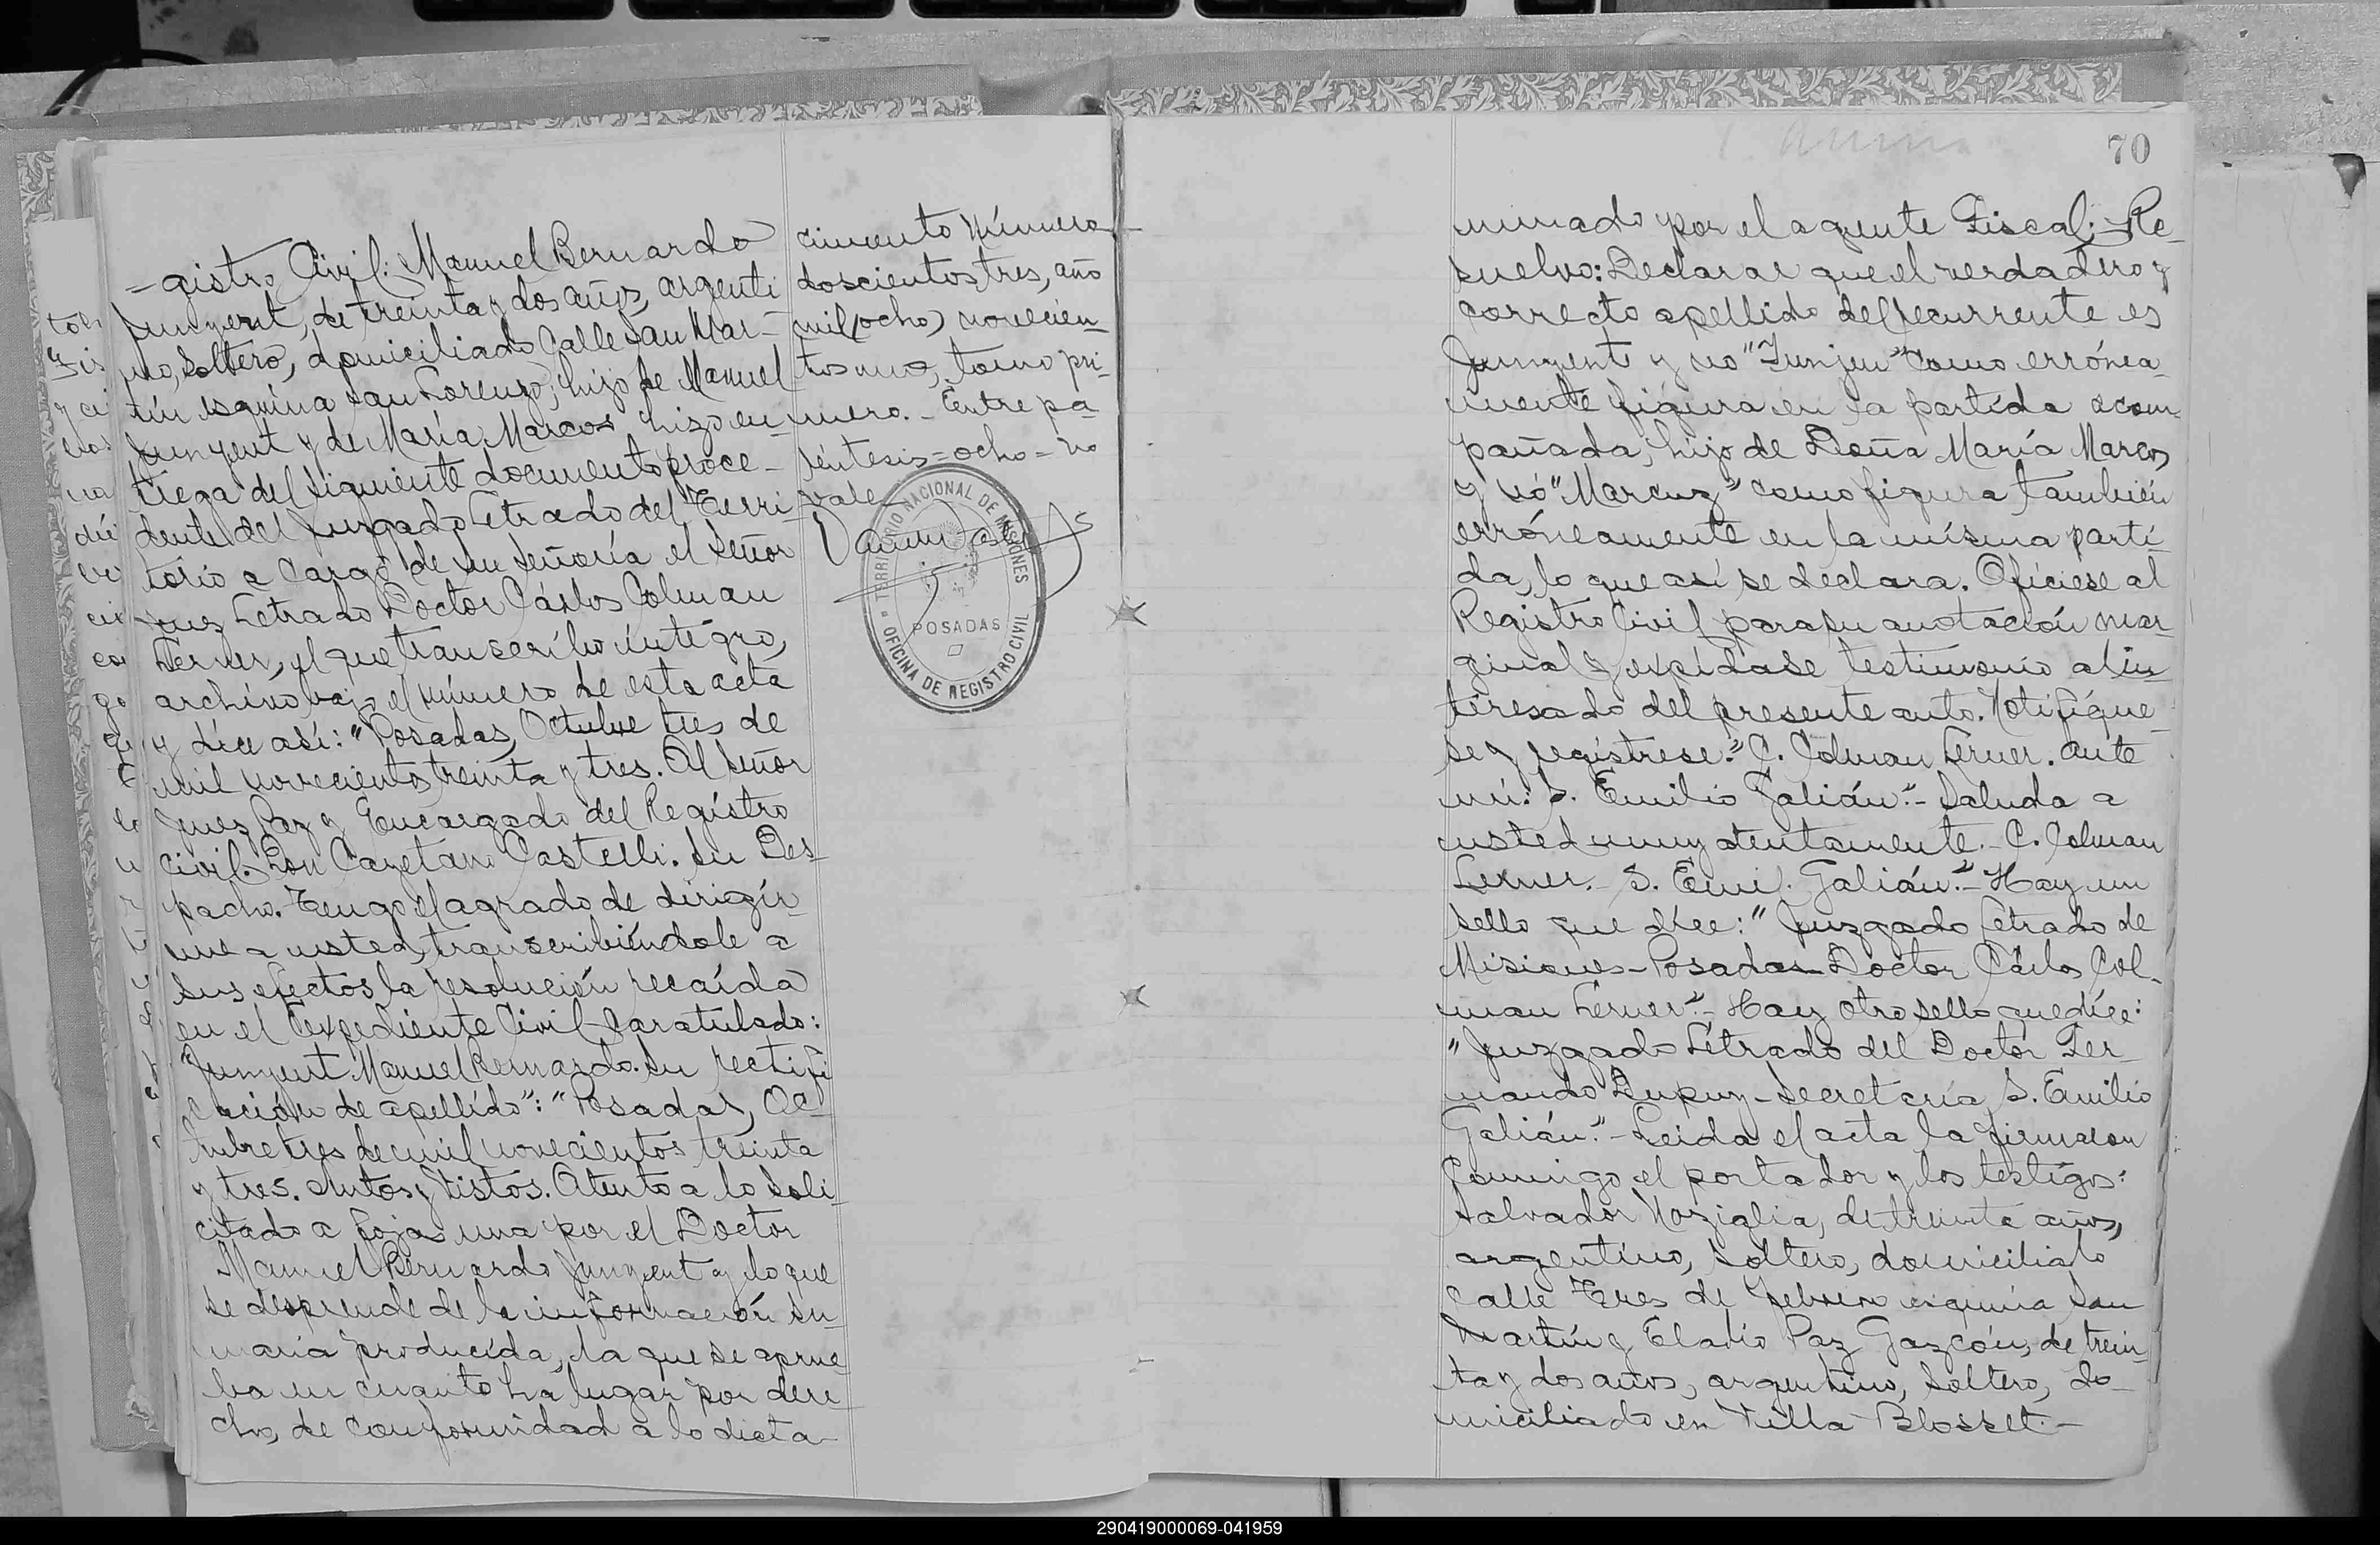 -gistro Civil: Manuel Bernardo
Junyent, de treinta y dos años, argenti
no, soltero, domiciliado Calle San Mar-
tín esquina San Lorenzo; hijo de Manuel
Junyent y de María Marcos hizo en-
trega del siguiente documento proce-
dente del Juzgado Letrado del Terri-
torio a cargo de su Señoría el Señor
Juez Letrado Doctor Cárlos Colman
Lerner, el que transcribo íntegro,
archivo bajo el número de esta acta
y díce así: "Posadas, Octubre tres de
mil novecientos treinta y tres. Al Señor
Juez Paz y Encargado del Registro
Civil Don Cayetano Castelli. Su Des-
pacho. Tengo el agrado de dirigír-
me a usted, transcribiéndole a
sus efectos la resolución recaída
en el Expediente Civil Caratulado:
"Junyent Manuel Bernardo. Su rectifi
cación de apellido": "Posadas, Oc-
tubre tres de mil novecientos treinta
y tres. Autos y Vistos. Atento a lo Soli
citado a fojas una por el Doctor
Manuel Bernardo Junyent y lo que
se desprende de la información su-
maria producída, la que se aprue
ba en cuanto há lugar por dere
cho, de conformidad a lo dicta-
cimiento número
doscientos tres, año
mil (ocho) novecien
tos uno, tomo pri-
mero.- Entre pa-
réntesis = ocho = no
vale.
TERRITORIO NACIONAL DE MISIONES
POSADAS
OFICINA DE REGISTRO CIVIL
70
minado por el agente Fiscal; Re-
suelvo: Declarar que el verdadero y
correcto apellido del recurrente es
Junyent y no "Junjen" como errónea-
mente figura en la partida acom-
pañada, hijo de Doña María Marcos
y nó "Marcuz" como figura también
erróneamente en la mísma parti-
da, lo que así se declara. Ofíciese al
Registro Civil para su anotación mar
ginal y expídase testimonio al in-
teresado del presente auto. Notifíque-
se y regístrese." C. Colman Lerner. Ante
mí: S. Emilio Galián".- Saluda a
usted muy atentamente.- C. Colman
Lerner.- S. Emi. Galián."- Hay un
sello que díce: "Juzgado Letrado de
Misiones-Posadas-Doctor Cárlos Col-
man Lerner".- Hay otro sello que díce:
"Juzgado Létrado del Doctor Fer-
nando Dupuy-Secretaría S. Emilio
Galián."- Leida el acta la firmaron
Conmigo el portador y los testígos:
Salvador Noziglia, de treinta años,
argentíno, Soltero, domiciliado
Calle Tres de Febrero esquina San
Martín y Eladio Paz Gazcón, de trein-
ta y dos años, argentino, Soltero, do-
miciliado en Villa Blosset.-
290419000069-041959